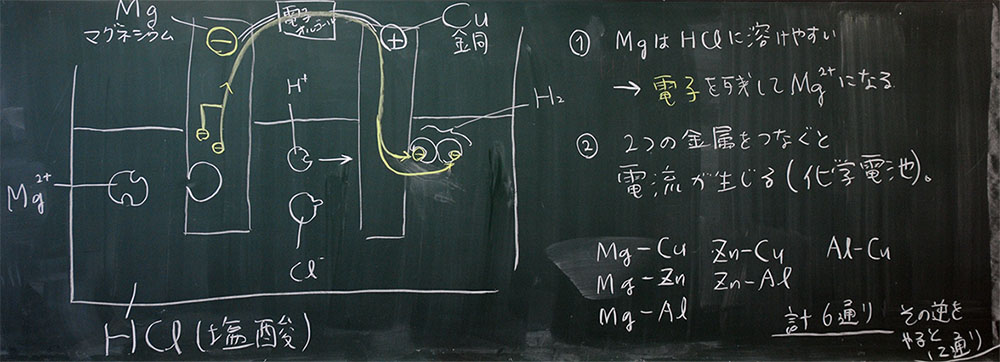 Mg
マグネシウム
⊖
電子
オルゴール
⊕
Cu
銅
H⁺
H₂
⊖
⊖
⊖
⊖
Mg²⁺
Cl⁻
HCl(塩酸)
① MgはHClに溶けやすい
→ 電子を残してMg²⁺になる
② 2つの金属をつなぐと
電流が生じる(化学電池)。
Mg-Cu Zn-Cu Al-Cu
Mg-Zn Zn-Al
Mg-Al
計6通り
その逆を
やると
2通り